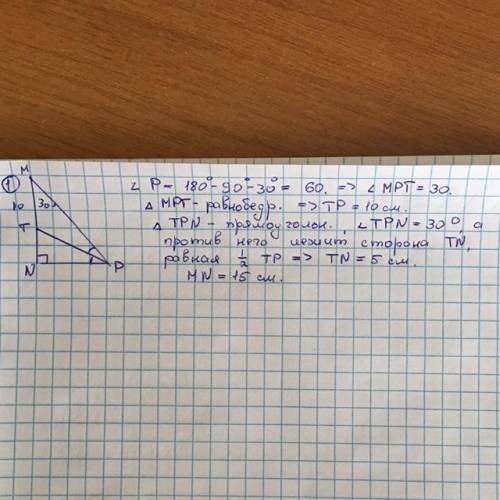 1
M
10 30°
T
N P
∠ P - 180° - 90° - 30° = 60. => ∠ MPT = 30.
△ MPT - равнобедр. => TP = 10 см.
△ TPN - прямоуголон., ∠ TPN = 30°, а
против него лежит сторона TN,
равная 1/2 TP => TN = 5 см.
MN = 15 см.